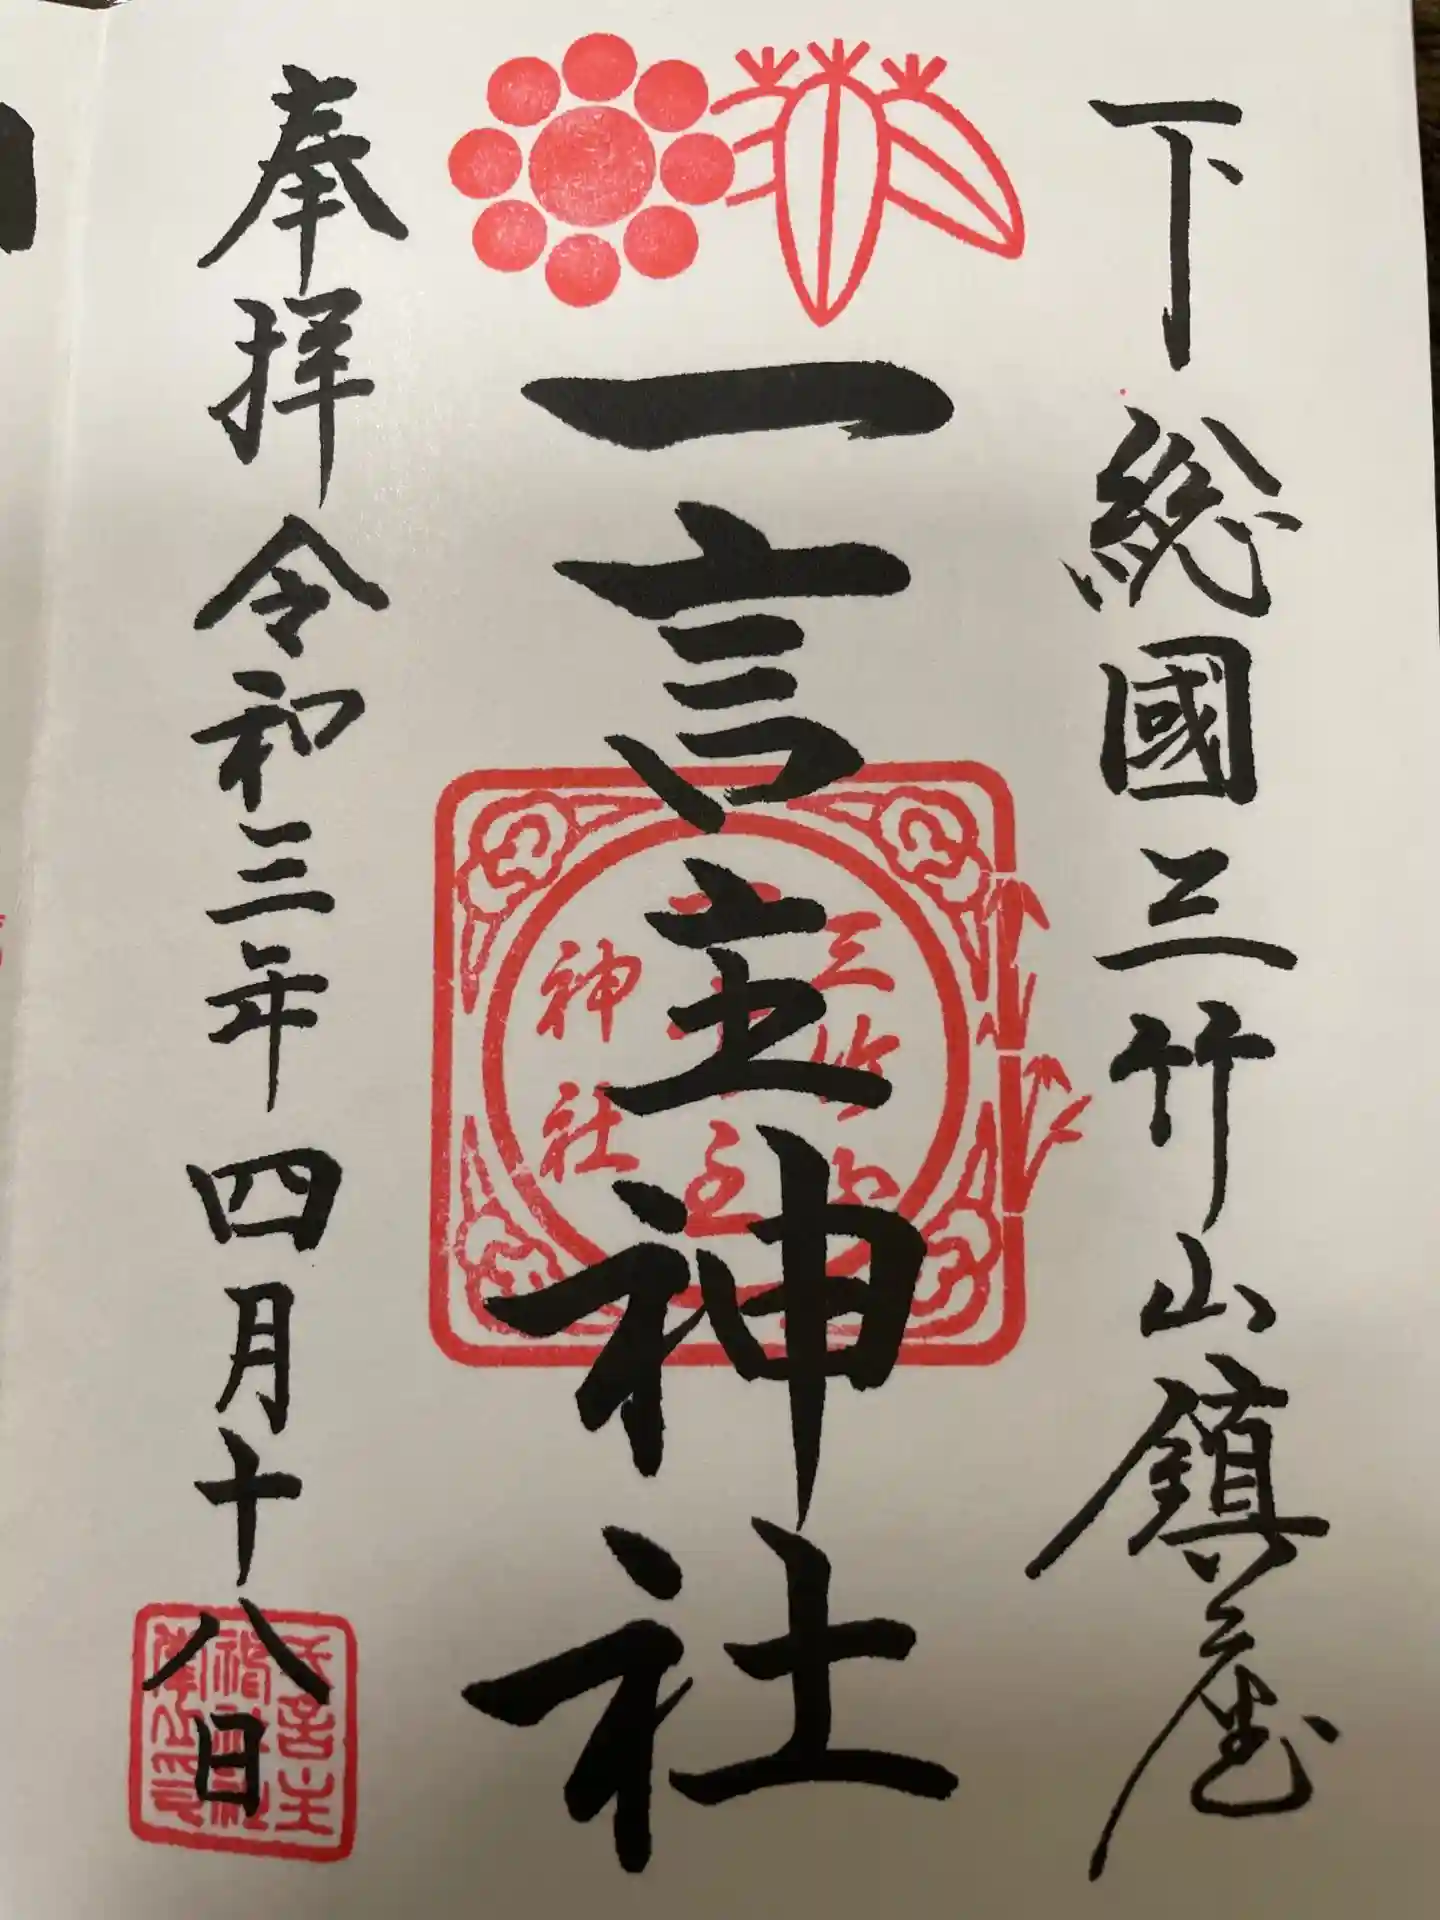 下総國三竹山鎮座
一言主神社
三竹山
主
神社
奉拝 令和三年四月十八日